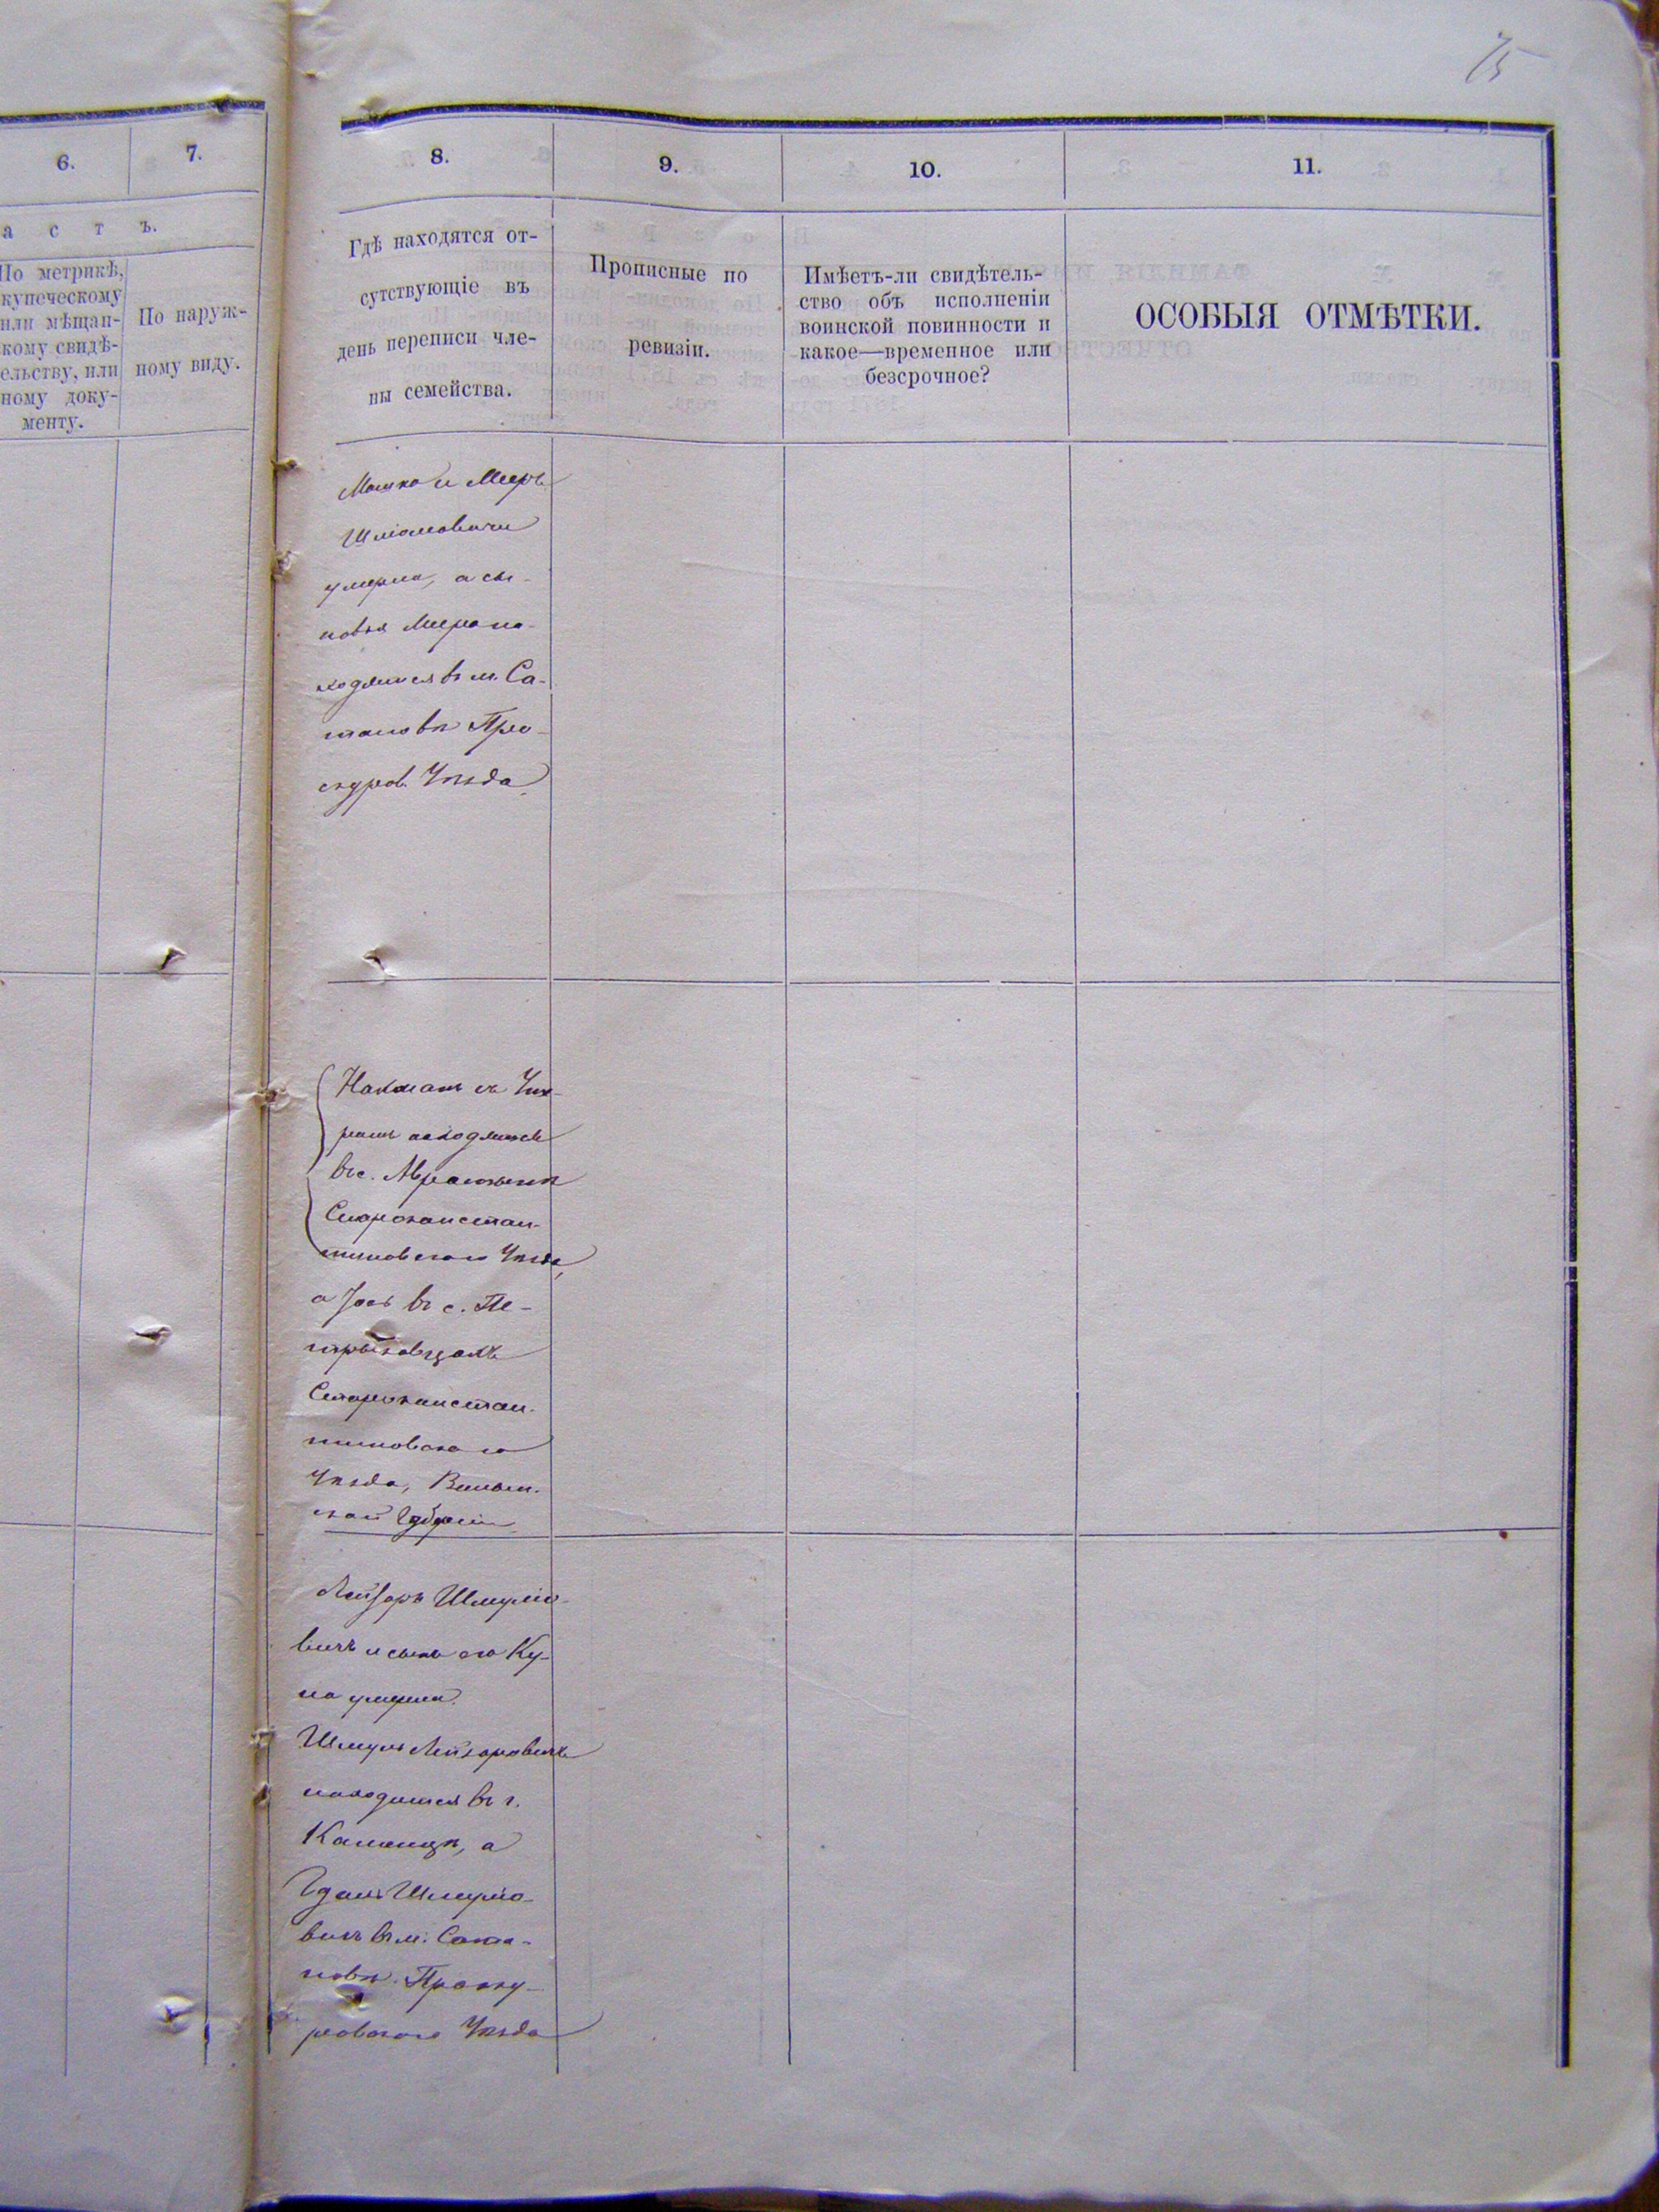 75
6.
7.
а с т ъ.
По метрикѣ,
купеческому
или мѣщан-
кому свидѣ-
ельству, или
ному доку-
менту.
По наруж-
ному виду.
8.
9.
10.
11.
Гдѣ находятся от-
сутствующіе въ
день переписи чле-
ны семейства.
Прописные по
ревизіи.
Имѣетъ-ли свидѣтель-
ство объ исполненіи
воинской повинности и
какое—временное или
безсрочное?
ОСОБЫЯ ОТМѢТКИ.
Мошко и Мееръ
Шліомовичи
умерли, а сы-
новья Меера на-
ходятся въ м. Са-
тановѣ Прo-
скуров. Уѣзда
Нахманъ съ
находятся
въ с.
Староконстан-
тиновскаго Уѣзда,
а Іось въ с. Пе-
трыковцахъ
Староконстан-
тиновскаго
Уѣзда, Волын-
ской Губерніи
Лейзоръ Шмуліо-
вичъ и сынъ его Ку-
на умерли.
Шмуль Лейзоровичъ
находится въ г.
Каменцѣ, а
Шмуліо-
вичъ въ м. Сата-
новѣ Проску-
ровскаго Уѣзда